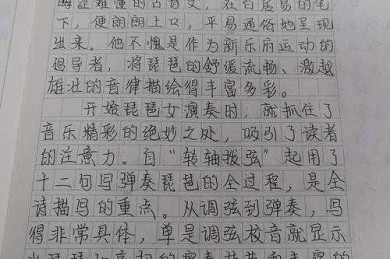 晦涩难懂的古诗文，在白居易的笔
下，便朗朗上口，平易通俗地呈现
出来。他不愧是作为新乐府运动的
倡导者，将琵琶的舒缓流畅、激越
雄壮的音律描绘得丰富多彩。
开始琵琶女演奏时，就抓住了
音乐精彩的绝妙之处，吸引了读者
的注意力。自“转轴拨弦”起用了
十二句写弹奏琵琶的全过程，是全
诗描写的重点。从调弦到弹奏，写
得非常具体，单是调弦校音就显示